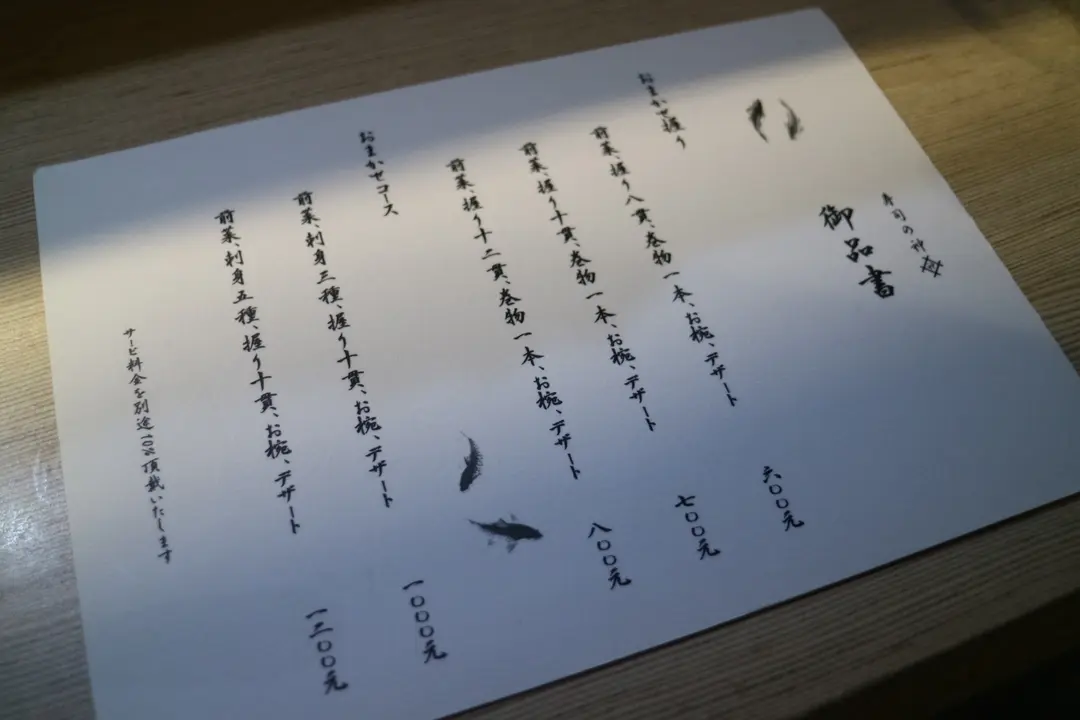 寿司の神
御品書
おまかせ握り
前菜、握り八貫、巻物一本、お椀、デザート
六〇〇元
前菜、握り十貫、巻物一本、お椀、デザート
七〇〇元
前菜、握り十二貫、巻物一本、お椀、デザート
八〇〇元
おまかせコース
前菜、刺身三種、握り十貫、お椀、デザート
一〇〇〇元
前菜、刺身五種、握り十貫、お椀、デザート
サービ料金を別途10%頂戴いたします